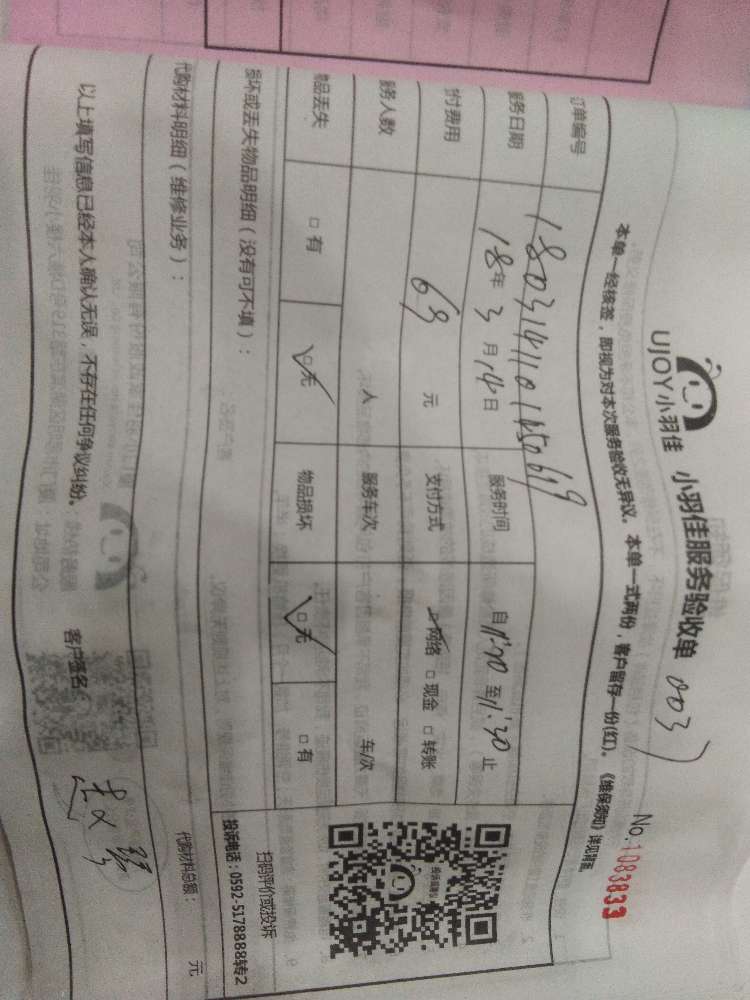 UJOY小羽佳 小羽佳服务验收单 003
No.1083833
本单一经核签，即视为对本次服务验收无异议。本单一式两份，客户留存一份(红)。《维保须知》详见背面
订单编号
服务日期 18年3月14日 服务时间 自11:00至11:30止
付费用 69元 支付方式 ☑网络 □现金 □转账
服务人数 人 服务车次 车/次
物品丢失 □有 ☑无 物品损坏 ☑无 □有
投诉或建议
扫码评价或投诉
投诉电话：0592-5178888转2
损坏或丢失物品明细（没有可不填）：
代购材料明细（维修业务）：
代购材料总额： 元
以上填写信息已经本人确认无误，不存在任何争议纠纷。 客户签名：